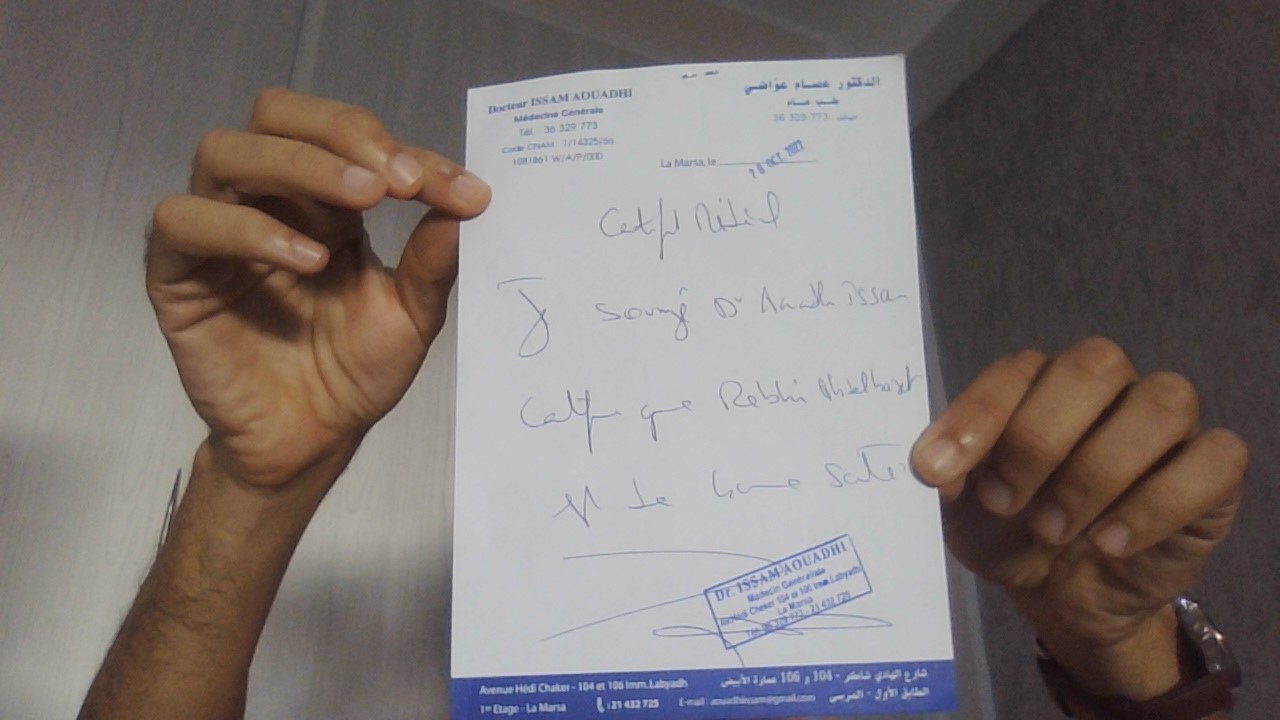 Docteur ISSAM AOUADHI
Médecine Générale
Tél. 36 329 773
Code CNAM : 1/14325/66
1081861 W/A/P/000
الدكتور عصام عواضي
طب عام
هاتف : 36 329 773
La Marsa, le
OCT. 2022
Certifi Médical
J Soussigé Dr Aouadh issam
Certifie que Rebhi
est de bonne Santé
Dr. ISSAM AOUADHI
Médecin Généraliste
Av Hédi Chaker 104 et 106 Imm. Labyadh
La Marsa
Tél: 36 329 773 - 21 432 725
Avenue Hédi Chaker - 104 et 106 Imm. Labyadh
1er Etage - La Marsa
: 21 432 725
E-mail : aouadhiissam@gmail.com
شارع الهادي شاكر - 104 و 106 عمارة الأبيض
الطابق الأول - المرسى